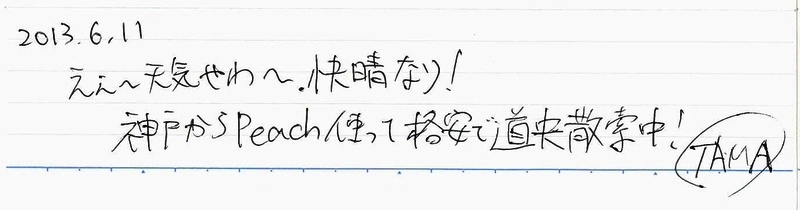 2013.6.11
ええ~天気やわ~.快晴なり!
神戸からPeach使って格安で道央散索中!
TAMA